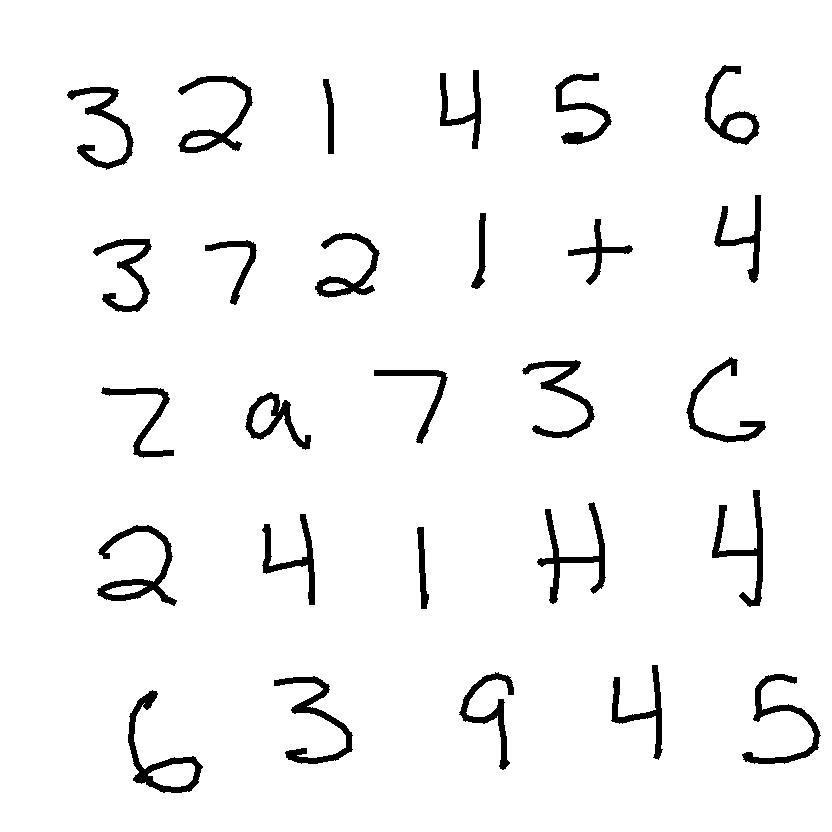 3 2 1 4 5 6
3 7 2 1 + 4
Z a 7 3 G
2 4 1 H 4
6 3 9 4 5